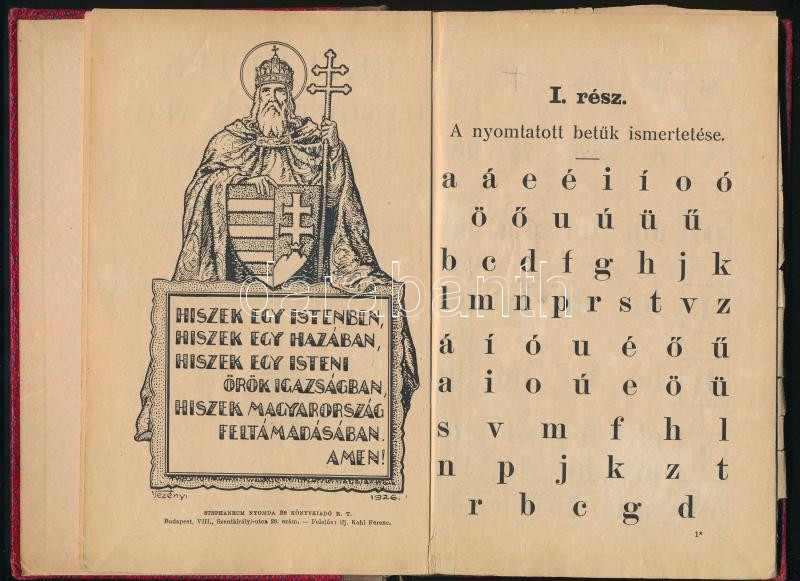 HISZEK EGY ISTENBEN,
HISZEK EGY HAZÁBAN,
HISZEK EGY ISTENI
ÖRÖK IGAZSÁGBAN,
HISZEK MAGYARORSZÁG
FELTÁMADÁSÁBAN.
AMEN!
1926.
STEPHANEUM NYOMDA ÉS KÖNYVKIADÓ R. T.
Budapest, VIII., Szentkirályi-utca 28. szám. — Felelős: ifj. Kohl Ferenc.
I. rész.
A nyomtatott betűk ismertetése.
a á e é i í o ó
ö ő u ú ü ű
b c d f g h j k
l m n p r s t v z
á í ó u é ő ű
a i o ú e ö ü
s v m f h l
n p j k z t
r b c g d
1*
darabanth